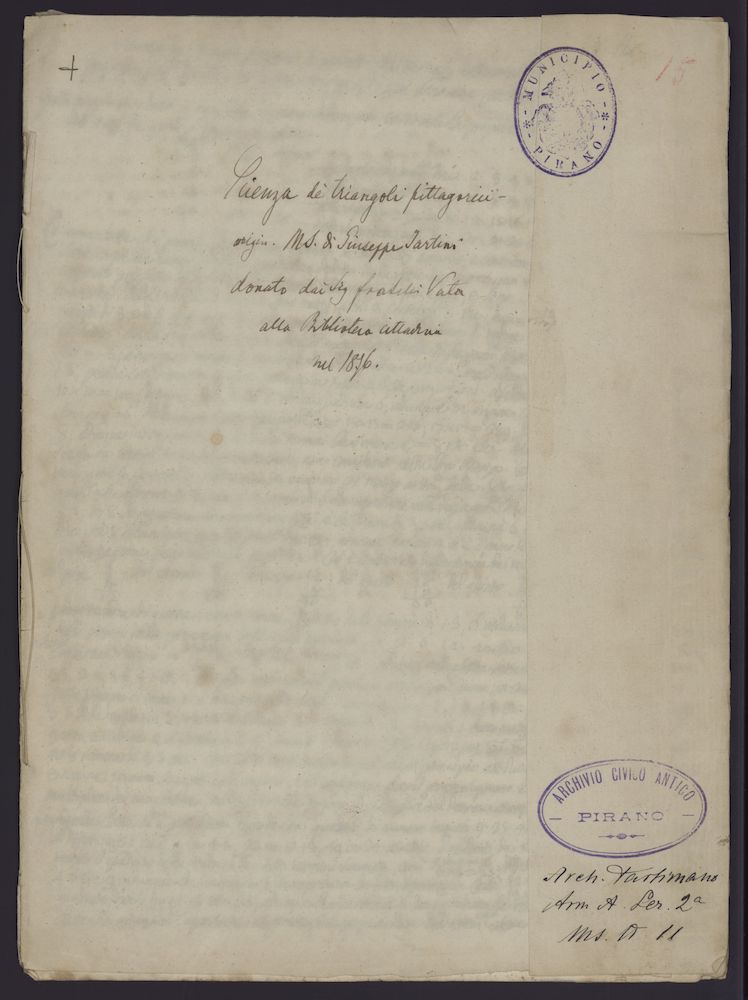 +
MUNICIPIO
PIRANO
15
Scienza de' triangoli pittagorici -
origin. MS. di Giuseppe Tartini
donato dai Sig fratelli Vatta
alla Biblioteca cittadina
nel 1896.
ARCHIVIO CIVICO ANTICO
- PIRANO -
Arch. Tartiniano
Arm A. Ser. 2a
Ms. 11